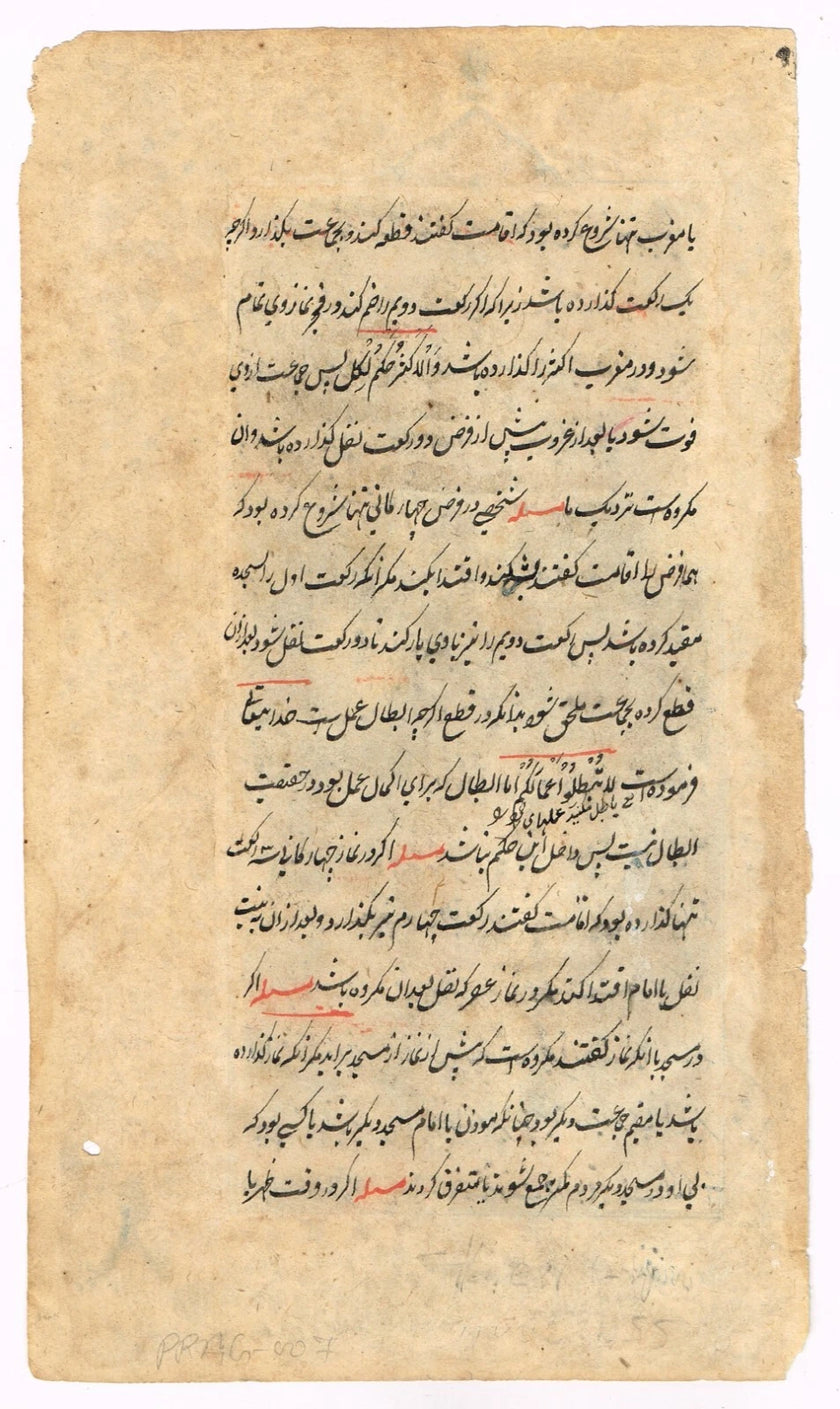 یا مغرب تنها شروع کرده بود که اقامت گفتند قطع کند و بجماعت بگذارد و اگرچه
یک رکعت گذارده باشد زیرا که اگر رکعت دویم را ضم کند در فجر نماز وی تمام
شود و در مغرب اکثر را گذارده باشد وَالْاَکْثَرُ حُکْمُ الْکُلِّ پس جماعت از وی
فوت شود یا بعد از غروب پیش از فرض دو رکعت نفل گذارده باشد و ان
مکروه است نزدیک ما مسله شخصی در فرض چهارکانی تنها شروع کرده بود که
همان فرض را اقامت گفتند کند و اقتدا بکند مکر آنکه رکعت اول را بسجده
مقید کرده باشد پس رکعت دویم را نیز باوی یار کند تا دو رکعت نفل شود بعد ازان
قطع کرده بجماعت ملحق شود بدانکه در قطع اگرچه ابطال عمل است خدایتعالی
فرموده است لا تُبْطِلُوْا اَعْمَالَکُمْ اما ابطال که برای اکمال عمل بود در حقیقت
ای باطل نکنید عملهای خود را
ابطال نیست پس داخل این حکم نباشد مسله اکر در نماز چهارکانی سه رکعت
تنها گذارده بود که اقامت گفتند رکعت چهارم نیز بگذارد و بعد ازان به نیت
نفل با امام اقتدا کند مکر در نماز عصر که نفل بعد ان مکروه باشد مسله اکر
در مسجد بانک نماز گفتند مکروه است که پیش از نماز از مسجد براید مکر آنکه نماز گذارده
باشد یا مقیم جماعت دیکر بود چنانکه موذن یا امام مسجد دیکر باشد یا کسی بود که
بی او در مسجد دیکر مردم جمع نشوند یا متفرق کردند مسله اکر در وقت ظهر یا
PPAG-007